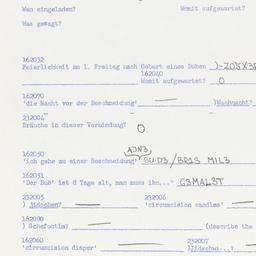 Wen eingeladen? Womit aufgewartet?
Was gewagt?
162032
Feierlichkeit am 1. Freitag nach Geburt eines Buben )-ZO5X3
162040
Womit aufgewartet? O
162070
'die Nacht vor der Beschneidung' — )Wachnacht?
232004
Bräuche in dieser Verbindung? O
162050 AJN3
'ich gehe zu einer Beschneidung' /BR1S MIL3
162051
'Der Bub' ist 8 Tage alt, man muss ihn..." G3MAL3T
232005 232006
) Jidschen? — 'circumcision candles' —
162080
) Schefootim? — (describe the
162060 232007
'circumcision diaper' — )Jidschwi...?